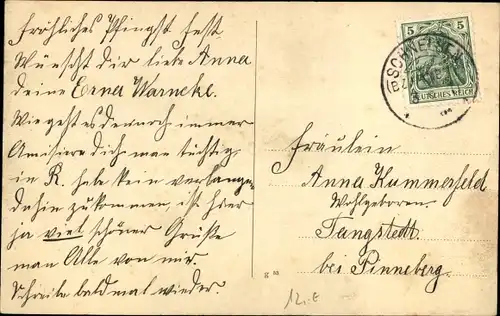 Fröhliches Pfingst fest
Wünscht dir liebe Anna
deine Erna Warneke.
Wie geht es dennoch immer
Amisiere dich man tüchtig,
in R. habe kein verlangen
dahin zukommen, ist hier
ja viel schöner Grüße
man Alle von mir
Schreibe bald mal wieder.
5 5
SCHNELSEN
DEUTSCHES REICH
Fräulein
Anna Kummerfeld
Wohlgeboren.
Tangstedt.
bei Pinneberg.